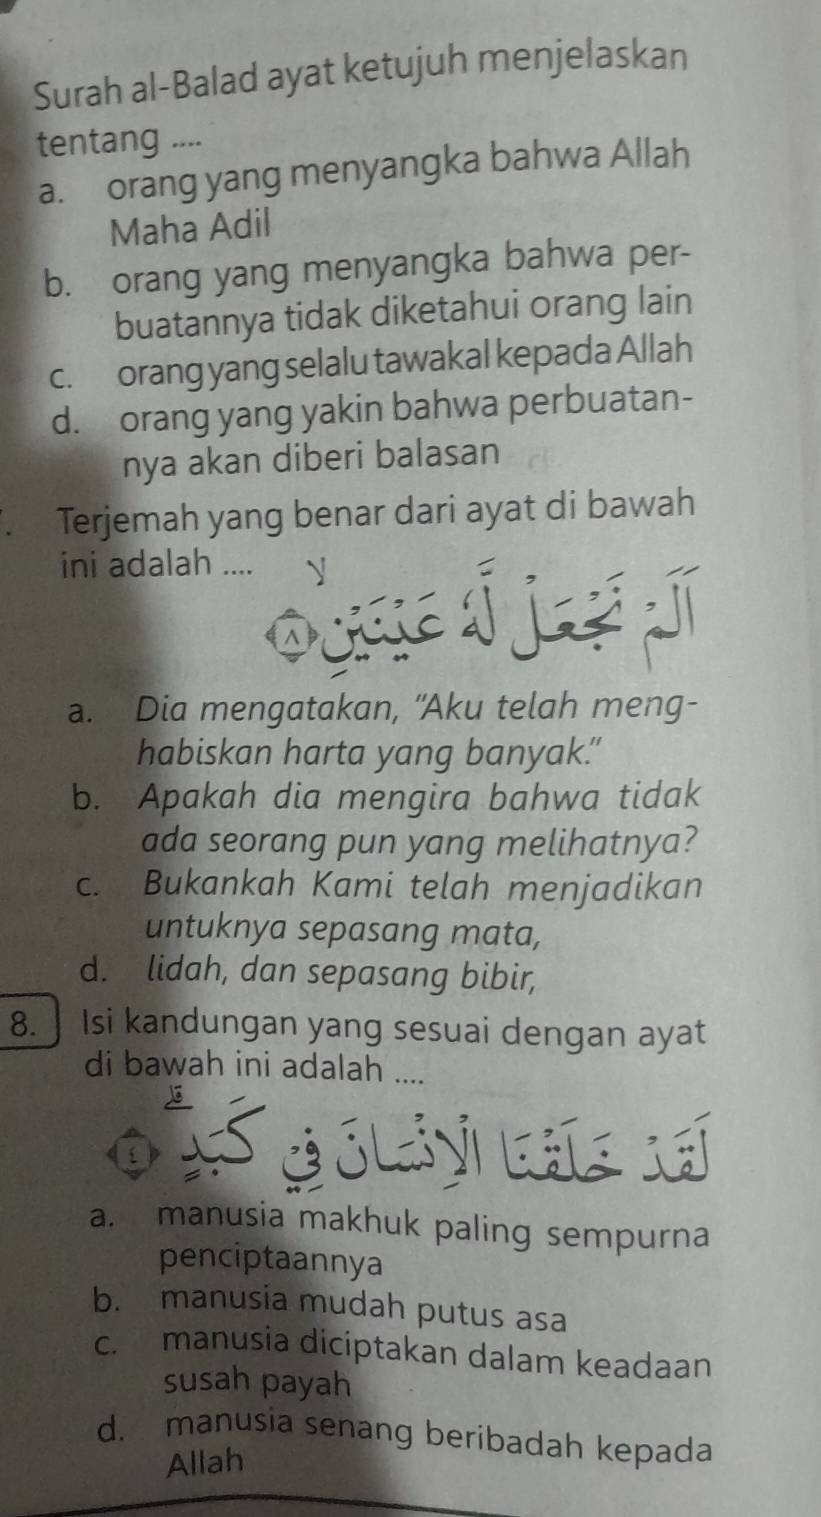 Surah al-Balad ayat ketujuh menjelaskan
tentang ....
a. orang yang menyangka bahwa Allah
Maha Adil
b. orang yang menyangka bahwa per-
buatannya tidak diketahui orang lain
c. orang yang selalu tawakal kepada Allah
d. orang yang yakin bahwa perbuatan-
nya akan diberi balasan
. Terjemah yang benar dari ayat di bawah
ini adalah ....
اَلَمْ نَجْعَلْ لَّهٗ عَيْنَيْنِۙ ﴿٨﴾
a. Dia mengatakan, "Aku telah meng-
habiskan harta yang banyak."
b. Apakah dia mengira bahwa tidak
ada seorang pun yang melihatnya?
c. Bukankah Kami telah menjadikan
untuknya sepasang mata,
d. lidah, dan sepasang bibir,
8. Isi kandungan yang sesuai dengan ayat
di bawah ini adalah ....
لَقَدْ خَلَقْنَا الْاِنْسَانَ فِيْ كَبَدٍۗ ﴿٤﴾
a. manusia makhuk paling sempurna
penciptaannya
b. manusia mudah putus asa
c. manusia diciptakan dalam keadaan
susah payah
d. manusia senang beribadah kepada
Allah